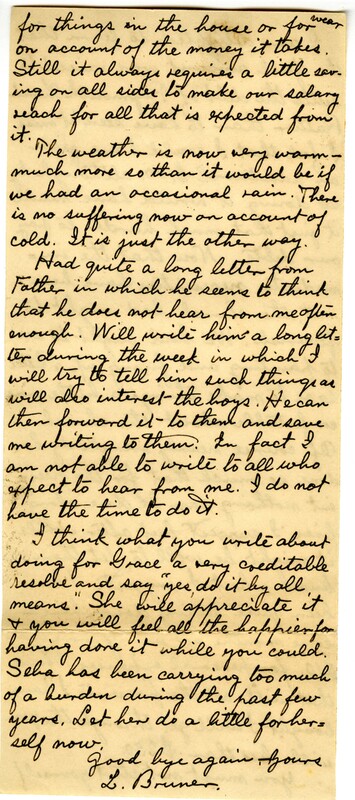 for things in the house or for wear
on account of the money it takes.
Still it always requires a little sav-
ing on all sides to make our salary
reach for all that is expected from
it.
The weather is now very warm—
much more so than it would be if
we had an occasional rain. There
is no suffering now on account of
cold. It is just the other way.
Had quite a long letter from
Father in which he seems to think
that he does not hear from me often
enough. Will write him a long let=
ter during the week in which I
will try to tell him such things as
will also interest the boys. He can
then forward it to them and save
me writing to them. In fact I
am not able to write to all who
expect to hear from me. I do not
have the time to do it.
I think what you write about
doing for Grace a very creditable
resolve and say "yes, do it by all
means". She will appreciate it
& you will feel all the happier for
having done it while you could.
Selha has been carrying too much
of a burden during the past few
years. Let her do a little for her=
self now.
Good bye again – Yours
L. Bruner.